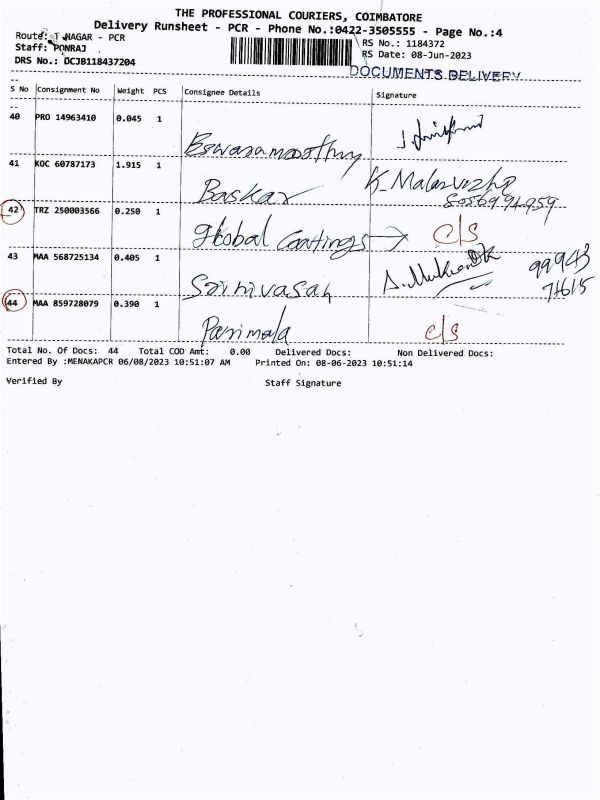 THE PROFESSIONAL COURIERS, COIMBATORE
Delivery Runsheet - PCR - Phone No.:0422-3505555 - Page No.:4
Route: NAGAR - PCR
RS No.: 1184372
Staff: PONRAJ
RS Date: 08-Jun-2023
DRS No.: DCJB118437204
DOCUMENTS DELIVERY
S No Consignment No Weight PCS Consignee Details Signature
40 PRO 14963410 0.045 1
Eswaramoorthy
41 KOC 60787173 1.915 1
Baskar K. Malarvizhi
42 TRZ 250003566 0.250 1
Global Coatings → C/S
43 MAA 568725134 0.405 1
Srinivasan 99943
71615
44 MAA 859728079 0.390 1
Parimala C/S
Total No. Of Docs: 44 Total COD Amt: 0.00 Delivered Docs: Non Delivered Docs:
Entered By :MENAKAPCR 06/08/2023 10:51:07 AM Printed On: 08-06-2023 10:51:14
Verified By Staff Signature